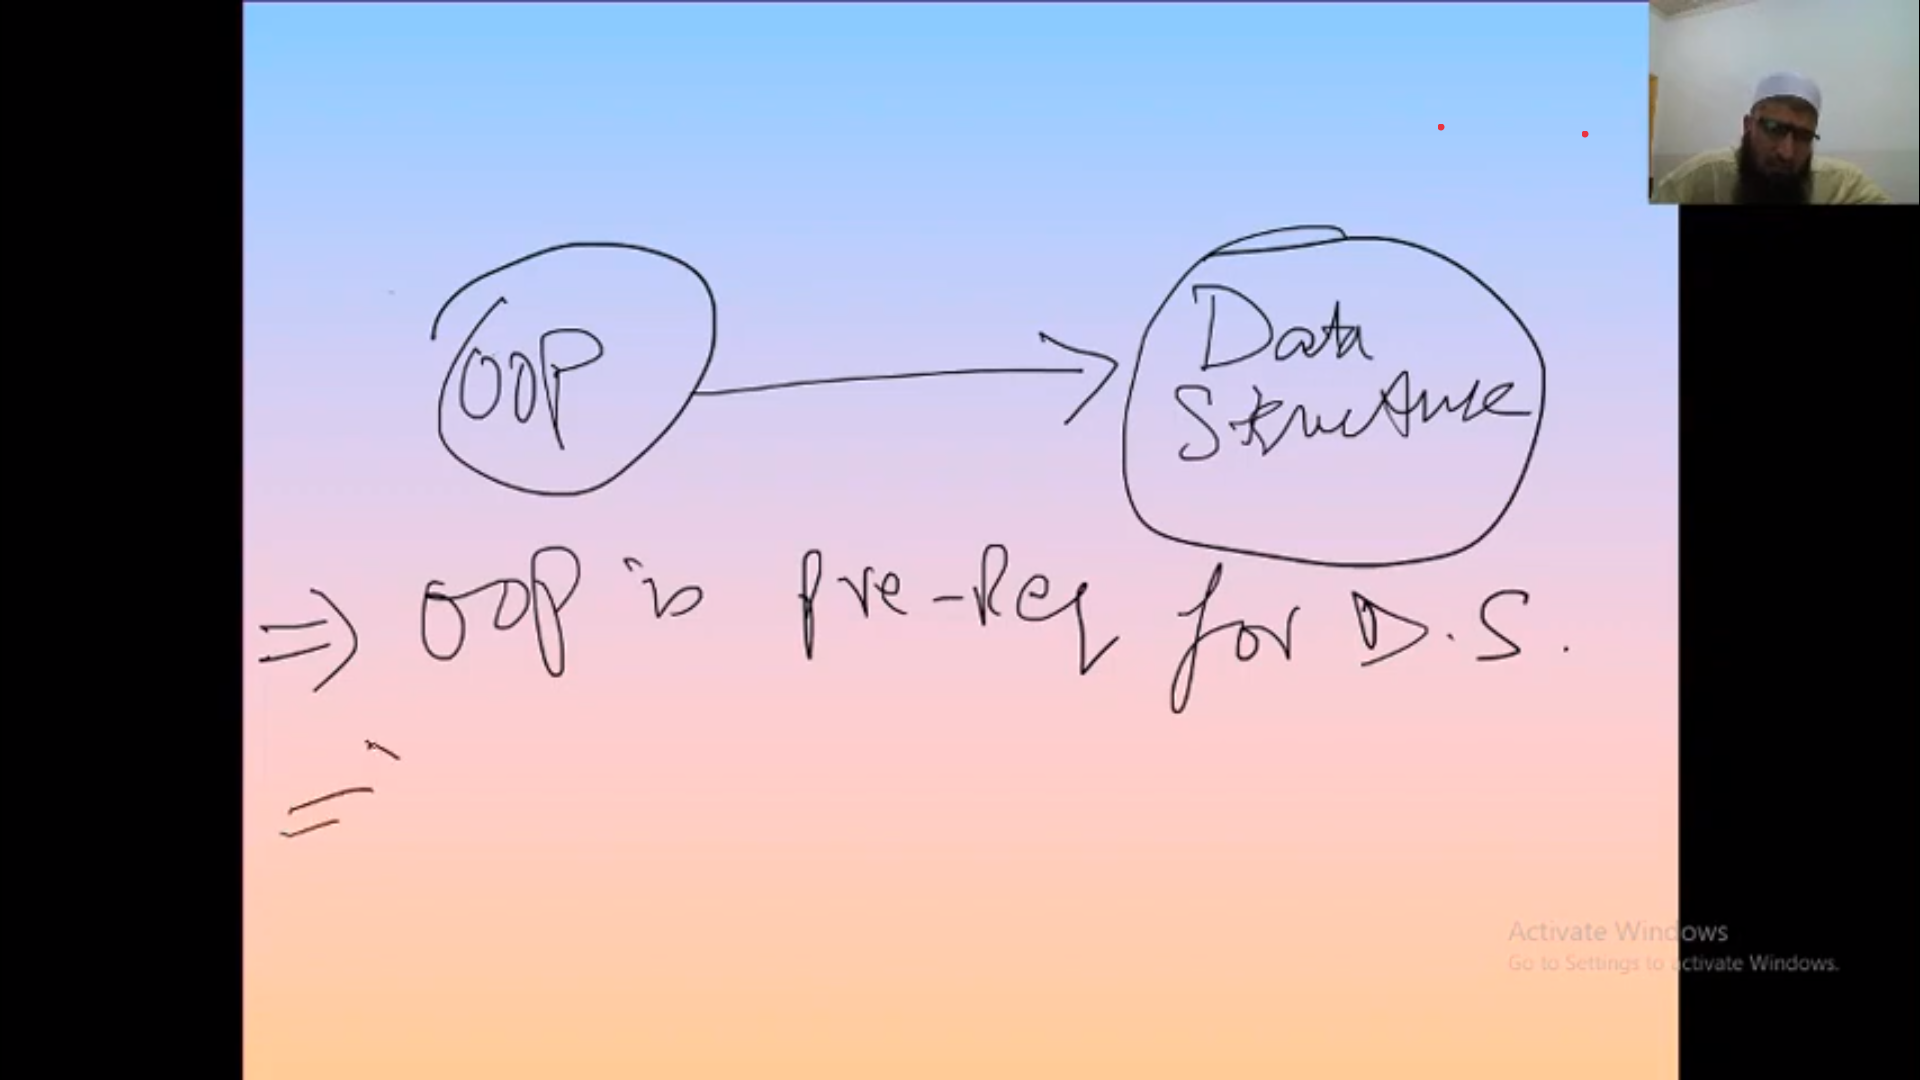 OOP
Data
Structure
⇒ OOP is Pre-Req for D.S.
=
Activate Windows
Go to Settings to activate Windows.